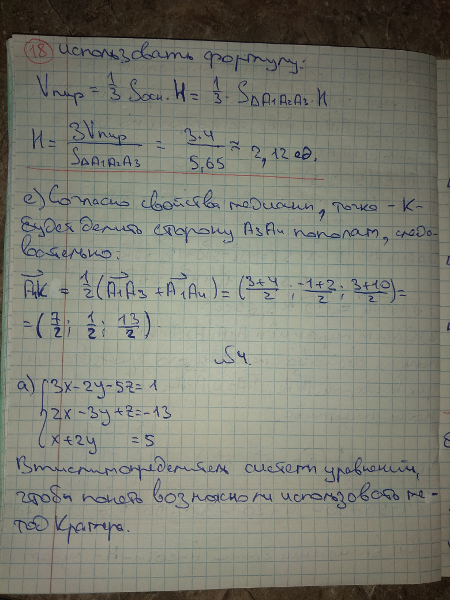 18 использовать формулу:
Vпир = 1/3 Sосн. H = 1/3 · S△A1A2A3 · H
H = 3Vпир / S△A1A2A3 = 3·4 / 5,65 ≈ 2,12 ед.
e) Согласно свойства медианы, точка -K-
будет делить сторону A3A4 пополам, следо-
вательно:
A1K = 1/2 (A1A3 + A1A4) = (3+4/2 ; -1+2/2 ; 3+10/2) =
= (7/2 ; 1/2 ; 13/2).
№4.
а) { 3x-2y-5z=1
2x-3y+z=-13
x+2y =5
Вычислим определитель систем уравнений,
чтобы понять возможно ли использовать ме-
тод Крамера.